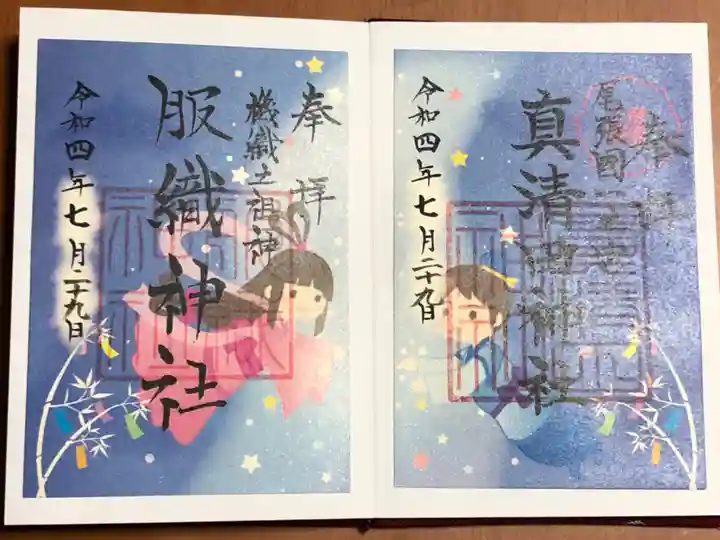 奉拝
尾張国
真清田神社
令和四年七月二十九日
奉拝
機織之祖神
服織神社
令和四年七月二十九日